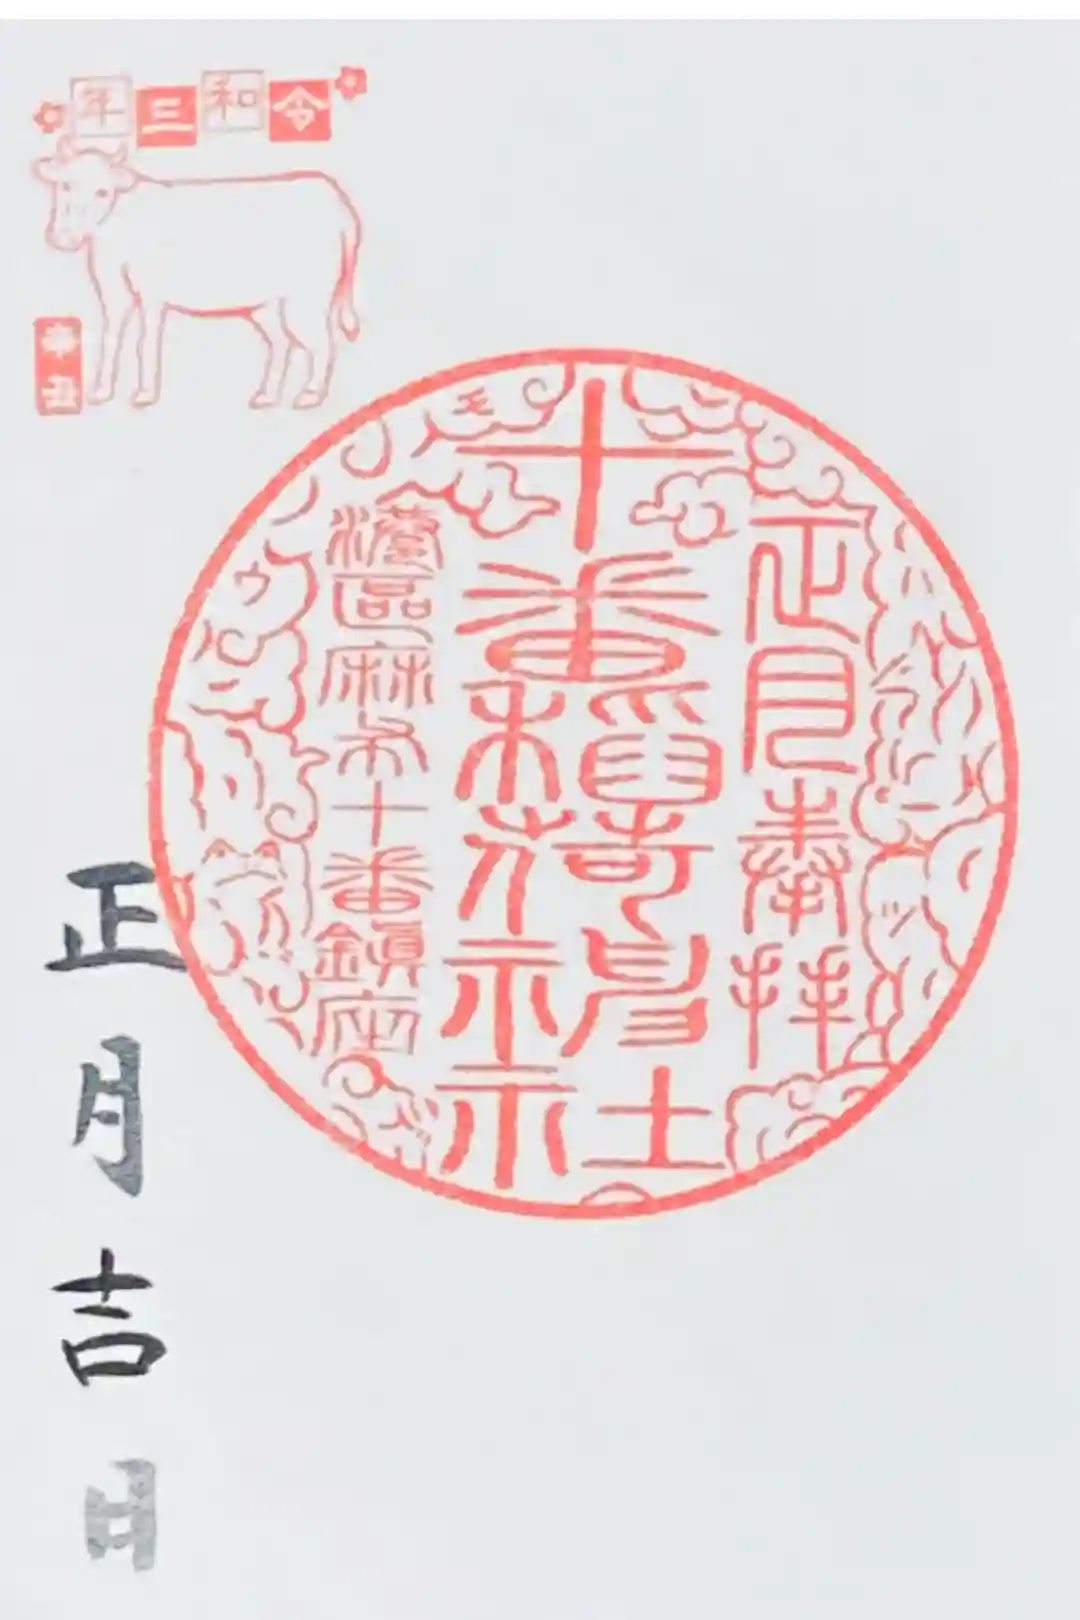 令和三年
辛丑
正月奉拝
十番稻荷神社
港區麻布十番鎮座
正月吉日